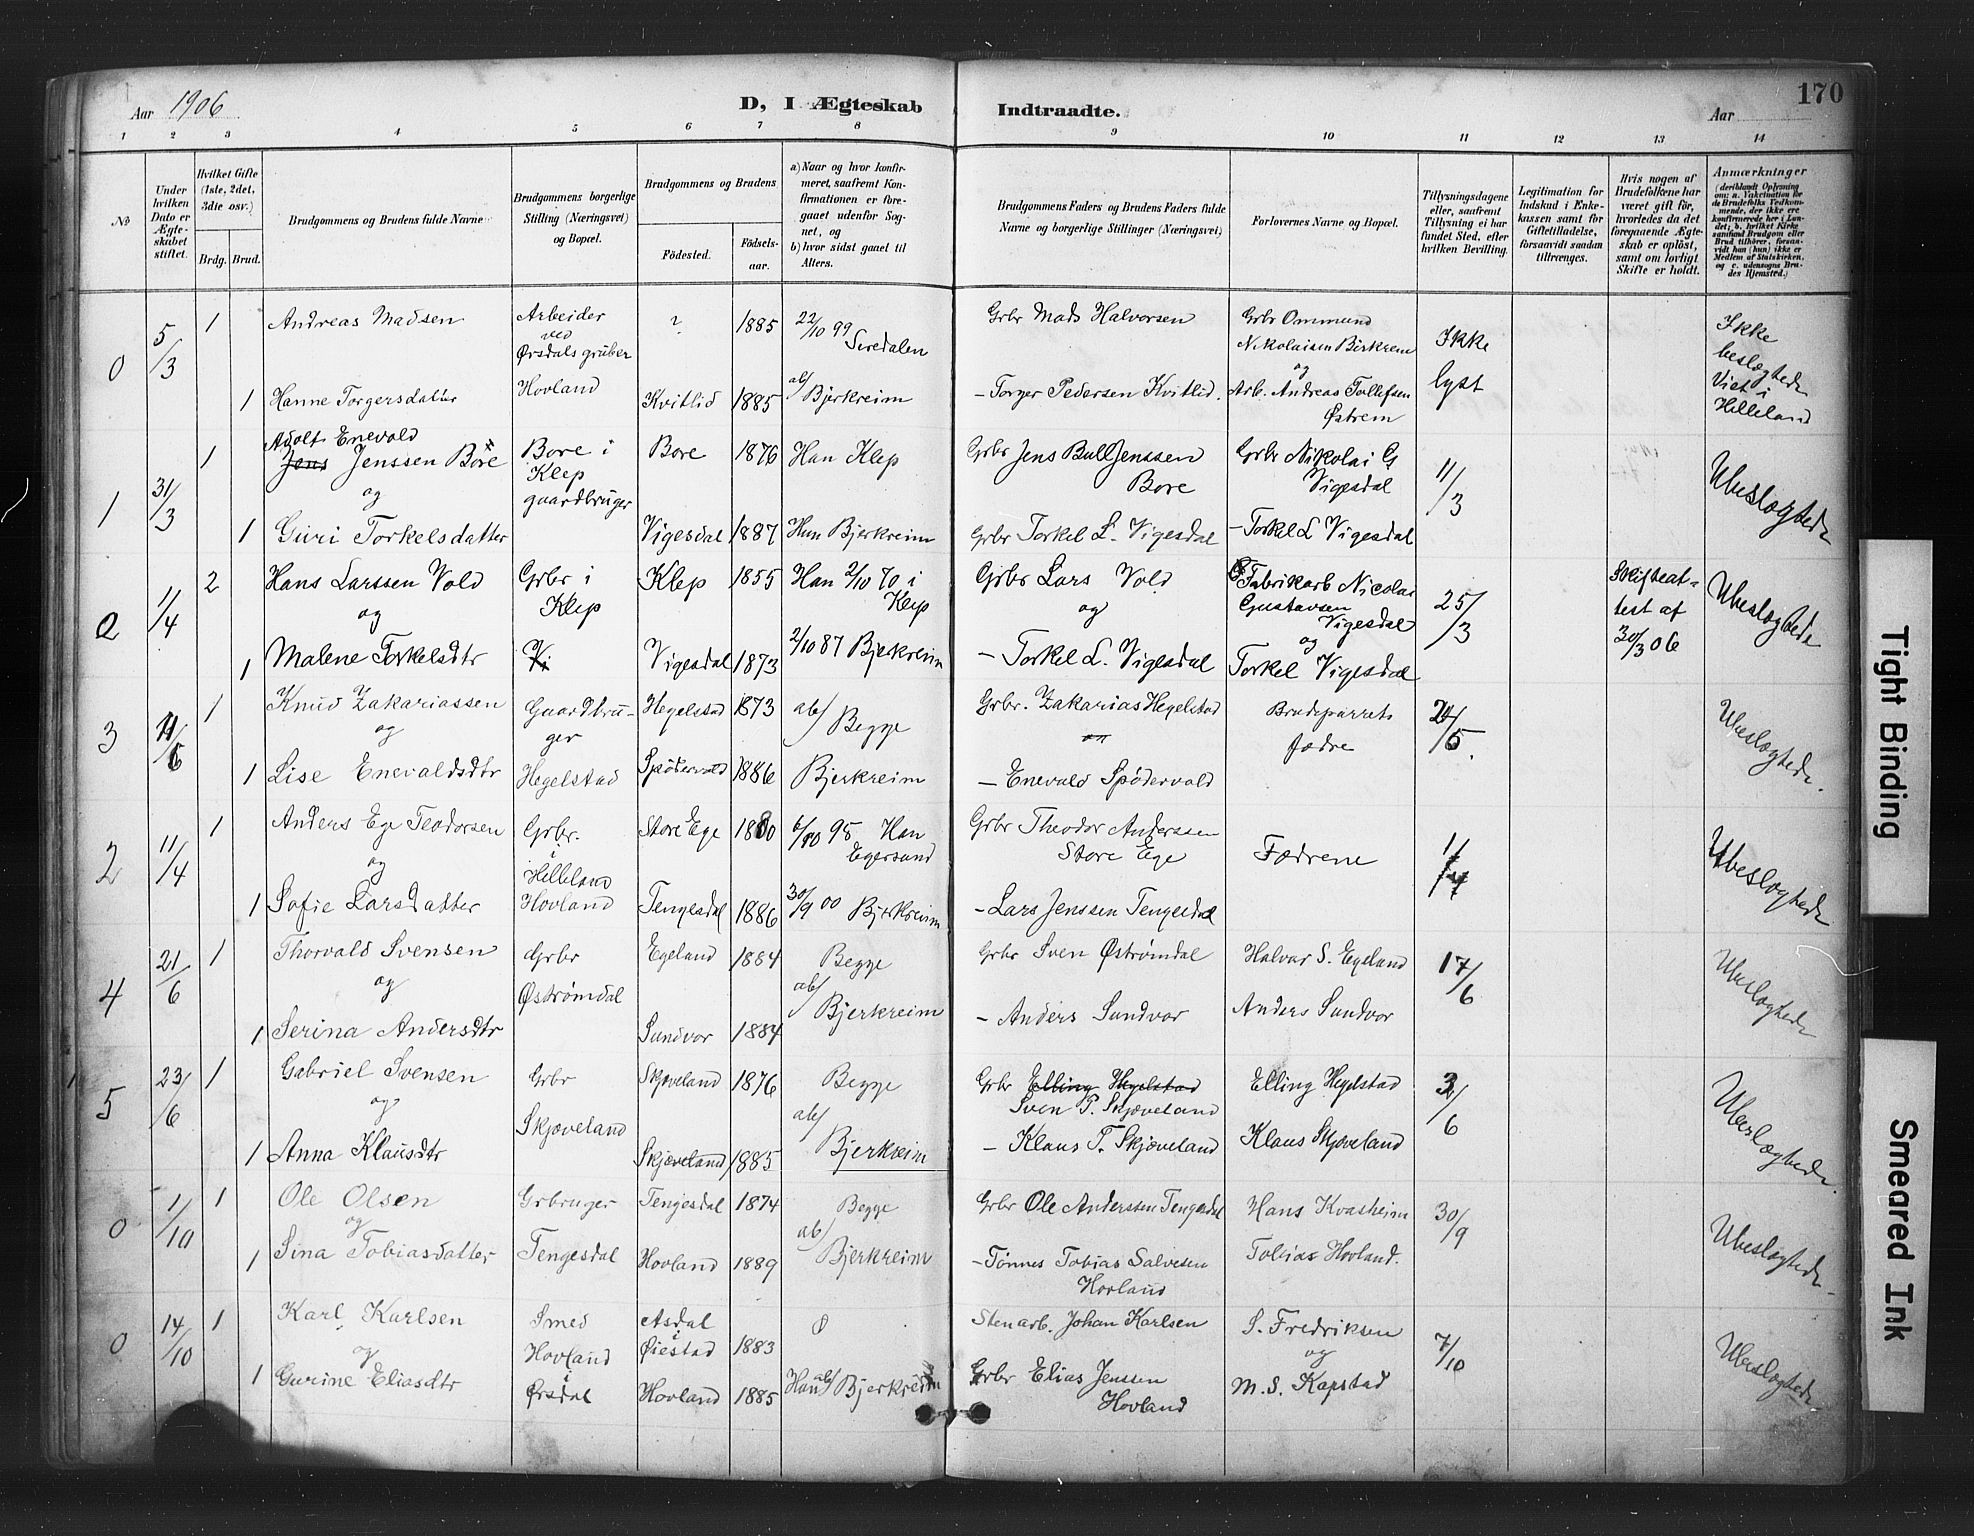 Aar 1906
D, I Ægteskab
Indtraadte.
Aar
170
1 2 3 4 5 6 7 8 9 10 11 12 13 14
No
Under hvilken Dato er Ægteskabet stiftet.
Hvilket Gifte (1ste, 2det, 3die osv.)
Brdg. Brud.
Brudgommens og Brudens fulde Navne
Brudgommens borgerlige Stilling (Næringsvei) og Bopæl.
Brudgommens og Brudens
Fødested.
Fødselsaar.
a) Naar og hvor konfirmeret, saafremt Konfirmationen er foregaaet udenfor Sognet, og
b) hvor sidst gaaet til Alters.
Brudgommens Faders og Brudens Faders fulde Navne og borgerlige Stillinger (Næringsvei)
Forlovernes Navne og Bopæl.
Tillysningsdagene eller, saafremt Tillysning ei har fundet Sted, efter hvilken Bevilling.
Legitimation for Indskud i Enkekassen samt for Giftetilladelse, forsaavidt saadan tiltrænges.
Hvis nogen af Brudefolkene har været gift før, hvorledes da det foregaaende Ægteskab er opløst, samt om lovligt Skifte er holdt.
Anmærkninger
(deriblandt Oplysning om: a. Vakcination for de Brudefolks Vedkommende, der ikke ere konfirmerede her i Landet; b. hvilket Kirkesamfund Brudgom eller Brud tilhører, forsavidt han (hun) ikke er Medlem af Statskirken, og c. udensogns Brudes Hjemsted.)
0 5/3 1 Andreas Madsen Arbeider ved Ørsdals gruber ? 1885 22/10 99 Siredalen Grbr Mads Halvorsen Grbr Ommund Nikolaisen Birkrem Ikke Ikke beslægtede
1 Hanne Torgersdatter Hovland Kvitlid 1885 ab/ Bjerkreim - Torger Pedersen Kvitlid. og Arb. Andreas Tollefsen Østrem lyst Viet i Helleland
1 31/3 1 Adolf Enevold Jens Jenssen Bore Bore i Klep gaardbruger Bore 1876 Han Klep Grbr Jens Bull Jenssen Bore Grbr Nikolai G Vigesdal 11/3 Ubeslægtede
og
1 Guri Torkelsdatter Vigesdal 1887 Hun Bjerkreim Grbr Torkel L. Vigesdal - Torkel L Vigesdal
2 11/4 2 Hans Larssen Vold Grbr i Klep Klep 1855 Han 2/10 70 i Klep Grbr Lars Vold Fabrikarb Nicolai Gustavsen Vigesdal 25/3 Skifteattest af 30/3 06 Ubeslægtede
og og og
1 Malene Torkelsdtr Vi Vigesdal 1873 2/10 87 Bjerkreim - Torkel L. Vigesdal Torkel Vigesdal
3 1 Knud Zakariassen Gaardbruger Hegelstad 1873 ab/ Begge Grbr. Zakarias Hegelstad Brudeparrets fædre Ubeslægtede.
og
1 Lise Enevaldsdtr Hegelstad Spødervold 1886 Bjerkreim - Enevald Spødervold
2 11/4 1 Anders Ege Teodorsen Grbr. i Helleland Store Ege 1880 6/10 95 Han Egersund Grbr Theodor Anderssen Store Ege Fædrene 1/4 Ubeslægtede
og
1 Sofie Larsdatter Hovland Tengesdal 1886 30/9 00 Bjerkreim - Lars Jenssen Tengesdal
4 21/6 1 Thorvald Svensen Grbr Egeland 1884 Begge Grbr Sven Østrømdal Halvar S. Egeland 17/6 Ubeslægtede
og Østrømdal ab/
1 Serina Andersdtr Sundvor 1884 Bjerkreim - Anders Sundvor Anders Sundvor
5 23/6 1 Gabriel Svensen Grbr Skjæveland 1876 Begge Grbr Elling Hegelstad Sven P. Skjæveland Elling Hegelstad 3/6 Ubeslægtede.
og Skjæveland ab/
1 Anna Klausdtr Skjæveland 1885 Bjerkreim - Klaus T. Skjæveland Klaus Skjæveland
0 1/10 1 Ole Olsen Grbruger Tengesdal 1874 Begge Grbr Ole Anderssen Tengesdal Hans Kvasheim 30/9 Ubeslægtede
og ab/
1 Sina Tobiasdatter Tengesdal Hovland 1889 Bjerkreim - Tønnes Tobias Salvesen Hovland Tobias Hovland.
0 14/10 1 Karl Karlsen Smed Asdal i Øiestad 1883 Stenarb. Johan Karlsen S. Fredriksen 7/10 Ubeslægtede
og Hovland i og
1 Gurine Eliasdtr Ørsdal Hovland 1885 Bjerkreim Grbr Elias Jenssen Hovland M. S. Kapstad
Tight Binding
Smeared Ink